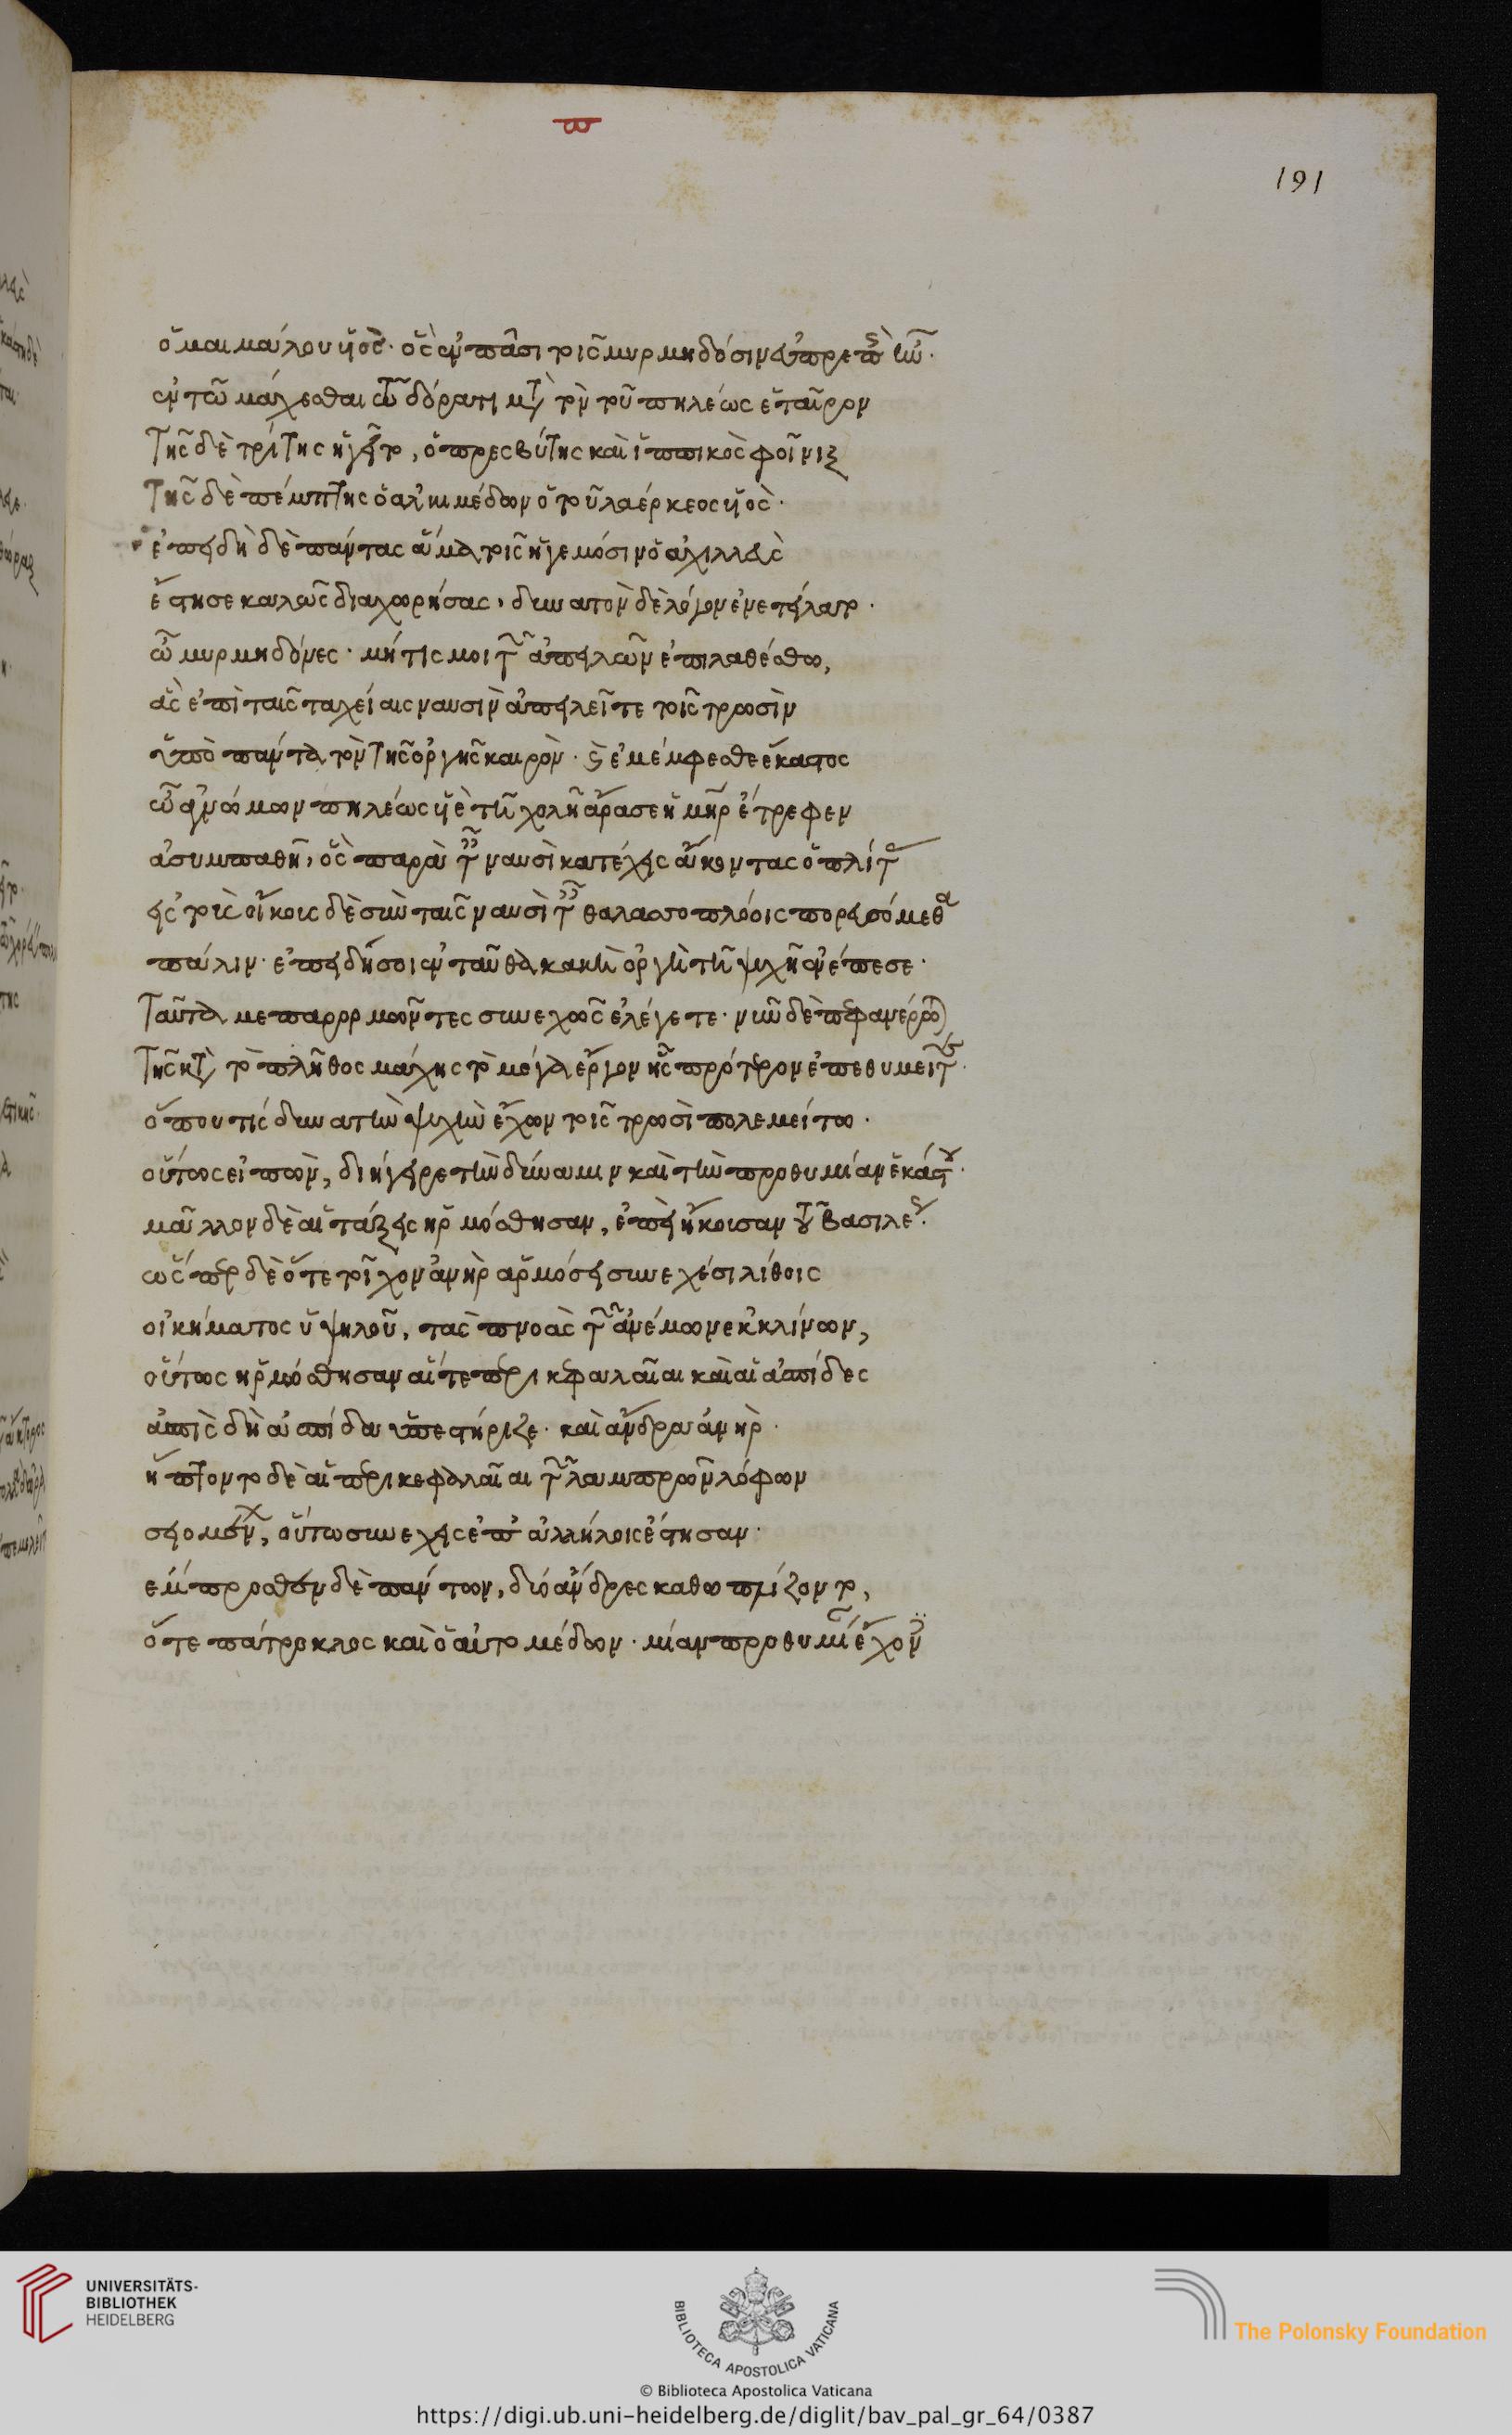 π
191
ὁ μαιμάλου υἱὸς· ὃς ἐν πᾶσι τοῖς μυρμηδόσιν εὐπρεπὴς ἦν·
ἐν τῶ μάχεσθαι τῶ δόρατι μετὰ τὸν τοῦ πηλέως ἑταῖρον
τῆς δὲ τρίτης ἡγεῖτο, ὁ πρεσβύτης καὶ ἱππικὸς φοῖνιξ
τῆς δὲ πέμπτης ὁ ἀλκιμέδων ὁ τοῦ λαέρκεος υἱὸς·
ἐπειδὴ δὲ πάντας ἅμα τοῖς ἡγεμόσιν ὁ ἀχιλλεὺς
ἔστησε καλῶς διαχωρήσας, δυνατὸν δὲ λόγον ἐνετείλατο·
ὦ μυρμηδόνες· μή τις μοι τῶν ἀπειλῶν ἐπιλαθέσθω,
ἃς ἐπὶ ταῖς ταχείαις ναυσὶν ἀπειλεῖτε τοῖς τρωσὶν
ὑπὸ πάντα τὸν τῆς ὀργῆς καιρὸν· καὶ ἐμέμφεσθε ἕκαστος
ὦ ἀγνώμων πηλέως υἱὲ τῇ χολῇ ἄρα σε ἡ μήτηρ ἔτρεφεν
ἀσυμπαθῆ, ὃς παρὰ ταῖς ναυσὶ κατέχεις ἄκοντας ὁπλίτας
εἰς τοὺς οἴκους δὲ σὺν ταῖς ναυσὶ ταῖς θαλασσοπλόοις πορευσόμεθα
πάλιν· ἐπειδή σοι ἐνταῦθα κακὴ ὀργὴ τῇ ψυχῇ ἐνέπεσε·
ταῦτα με παρορμῶντες συνεχῶς ἐλέγετε· νῦν δὲ πεφανέρωται
τῆς κατὰ τὸ πλῆθος μάχης τὸ μέγα ἔργον ἧς πρότερον ἐπεθυμεῖτε·
ὅπου τίς δυνατὴν ψυχὴν ἔχων τοῖς τρωσὶ πολεμείτω·
οὕτως εἰπὼν, διήγειρε τὴν δύναμιν καὶ τὴν προθυμίαν ἑκάστου·
μᾶλλον δὲ αἱ τάξεις ἡρμόσθησαν, ἐπεὶ ἤκουσαν τοῦ βασιλέως·
ὥσπερ δὲ ὅτε τοῖχον ἀνὴρ ἁρμόσει συνεχέσι λίθοις
οἰκήματος ὑψηλοῦ, τὰς πνοὰς τῶν ἀνέμων ἐκκλίνων,
οὕτως ἡρμόσθησαν αἵ τε περικεφαλαῖαι καὶ αἱ ἀσπίδες
ἀσπὶς δὴ ἀσπίδα ὑπεστήριζε· καὶ ἄνδρα ἀνὴρ·
ἥπτοντο δὲ αἱ περικεφαλαῖαι τῶν λαμπρῶν λόφων
σειομένων, οὕτω συνεχεῖς ἐπ' ἀλλήλοις ἔστησαν·
ἔμπροσθεν δὲ πάντων, δύο ἄνδρες καθωπλίζοντο,
ὅ τε πάτροκλος καὶ ὁ αὐτομέδων· μίαν προθυμίαν ἔχοντες
UNIVERSITÄTS-
BIBLIOTHEK
HEIDELBERG
BIBLIOTECA APOSTOLICA VATICANA
© Biblioteca Apostolica Vaticana
The Polonsky Foundation
https://digi.ub.uni-heidelberg.de/diglit/bav_pal_gr_64/0387